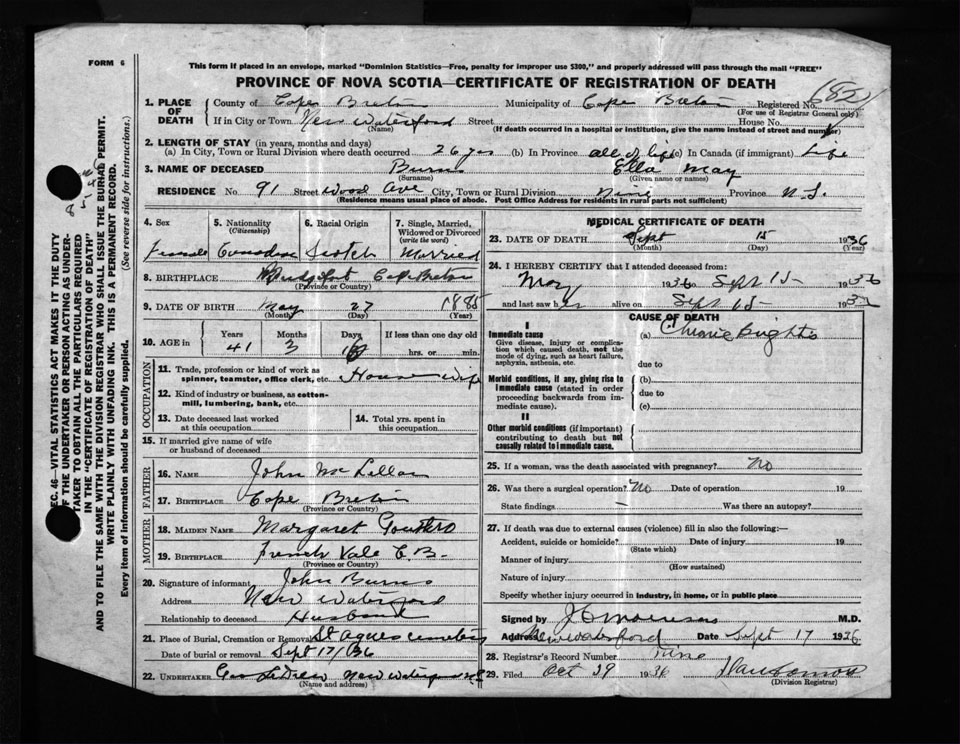 FORM 6
This form if placed in an envelope, marked "Dominion Statistics—Free, penalty for improper use $300," and properly addressed will pass through the mail "FREE"
PROVINCE OF NOVA SCOTIA—CERTIFICATE OF REGISTRATION OF DEATH
1. PLACE OF DEATH
County of Cape Breton Municipality of Cape Breton Registered No.
(For use of Registrar General only)
If in City or Town New Waterford Street House No.
(Name) (If death occurred in a hospital or institution, give the name instead of street and number)
2. LENGTH OF STAY (in years, months and days)
(a) In City, Town or Rural Division where death occurred 26 yrs (b) In Province all of life (c) In Canada (if immigrant) Life
3. NAME OF DECEASED Burns Ella May
(Surname) (Given name or names)
RESIDENCE No. 91 Street Wood Ave City, Town or Rural Division Province N.S.
(Residence means usual place of abode. Post Office Address for residents in rural parts not sufficient)
4. Sex
Female
5. Nationality
(Citizenship)
Canadian
6. Racial Origin
Scotch
7. Single, Married, Widowed or Divorced
(write the word)
Married
8. BIRTHPLACE Cape Breton
(Province or Country)
9. DATE OF BIRTH May 27 1885
(Month) (Day) (Year)
10. AGE in
Years Months Days If less than one day old
41 3 hrs. or min.
OCCUPATION
11. Trade, profession or kind of work as
spinner, teamster, office clerk, etc. House Wife
12. Kind of industry or business, as cotton-
mill, lumbering, bank, etc.
13. Date deceased last worked
at this occupation
14. Total yrs. spent in
this occupation
15. If married give name of wife
or husband of deceased
FATHER
16. NAME John McLellan
17. BIRTHPLACE Cape Breton
(Province or Country)
MOTHER
18. MAIDEN NAME Margaret
19. BIRTHPLACE French Vale C.B.
(Province or Country)
20. Signature of informant John Burns
Address New Waterford
Relationship to deceased Husband
21. Place of Burial, Cremation or Removal St Agnes cemetery
Date of burial or removal Sept 17/36
22. UNDERTAKER New Waterford N.S.
(Name and address)
MEDICAL CERTIFICATE OF DEATH
23. DATE OF DEATH Sept 15 1936
(Month) (Day) (Year)
24. I HEREBY CERTIFY that I attended deceased from:
May 1936 to Sept 15 1936
and last saw her alive on Sept 15 19
CAUSE OF DEATH
I
Immediate cause
Give disease, injury or complication which caused death, not the mode of dying, such as heart failure, asphyxia, asthenia, etc.
(a) Chronic Brights
due to
Morbid conditions, if any, giving rise to immediate cause (stated in order proceeding backwards from immediate cause).
(b)
due to
(c)
II
Other morbid conditions (if important) contributing to death but not causally related to immediate cause.
25. If a woman, was the death associated with pregnancy? No
26. Was there a surgical operation? No Date of operation 19
State findings — Was there an autopsy?
27. If death was due to external causes (violence) fill in also the following:—
Accident, suicide or homicide? Date of injury 19
(State which)
Manner of injury
(How sustained)
Nature of injury
Specify whether injury occurred in industry, in home, or in public place
Signed by M.D.
Address New Waterford Date Sept 17 1936
28. Registrar's Record Number
29. Filed Oct 29 1936
(Division Registrar)
SEC. 46—VITAL STATISTICS ACT MAKES IT THE DUTY
OF THE UNDERTAKER OR PERSON ACTING AS UNDER-
TAKER TO OBTAIN ALL THE PARTICULARS REQUIRED
IN THE "CERTIFICATE OF REGISTRATION OF DEATH"
AND TO FILE THE SAME WITH THE DIVISION REGISTRAR WHO SHALL ISSUE THE BURIAL PERMIT.
WRITE PLAINLY WITH UNFADING INK. THIS IS A PERMANENT RECORD.
Every item of information should be carefully supplied. (See reverse side for instructions.)